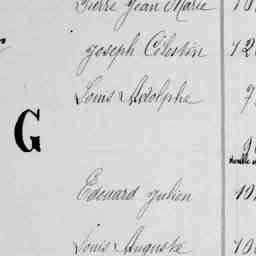 Pierre Jean Marie
Joseph Célestin
Louis Adolphe
G
double
Edouard Julien
Louis Auguste